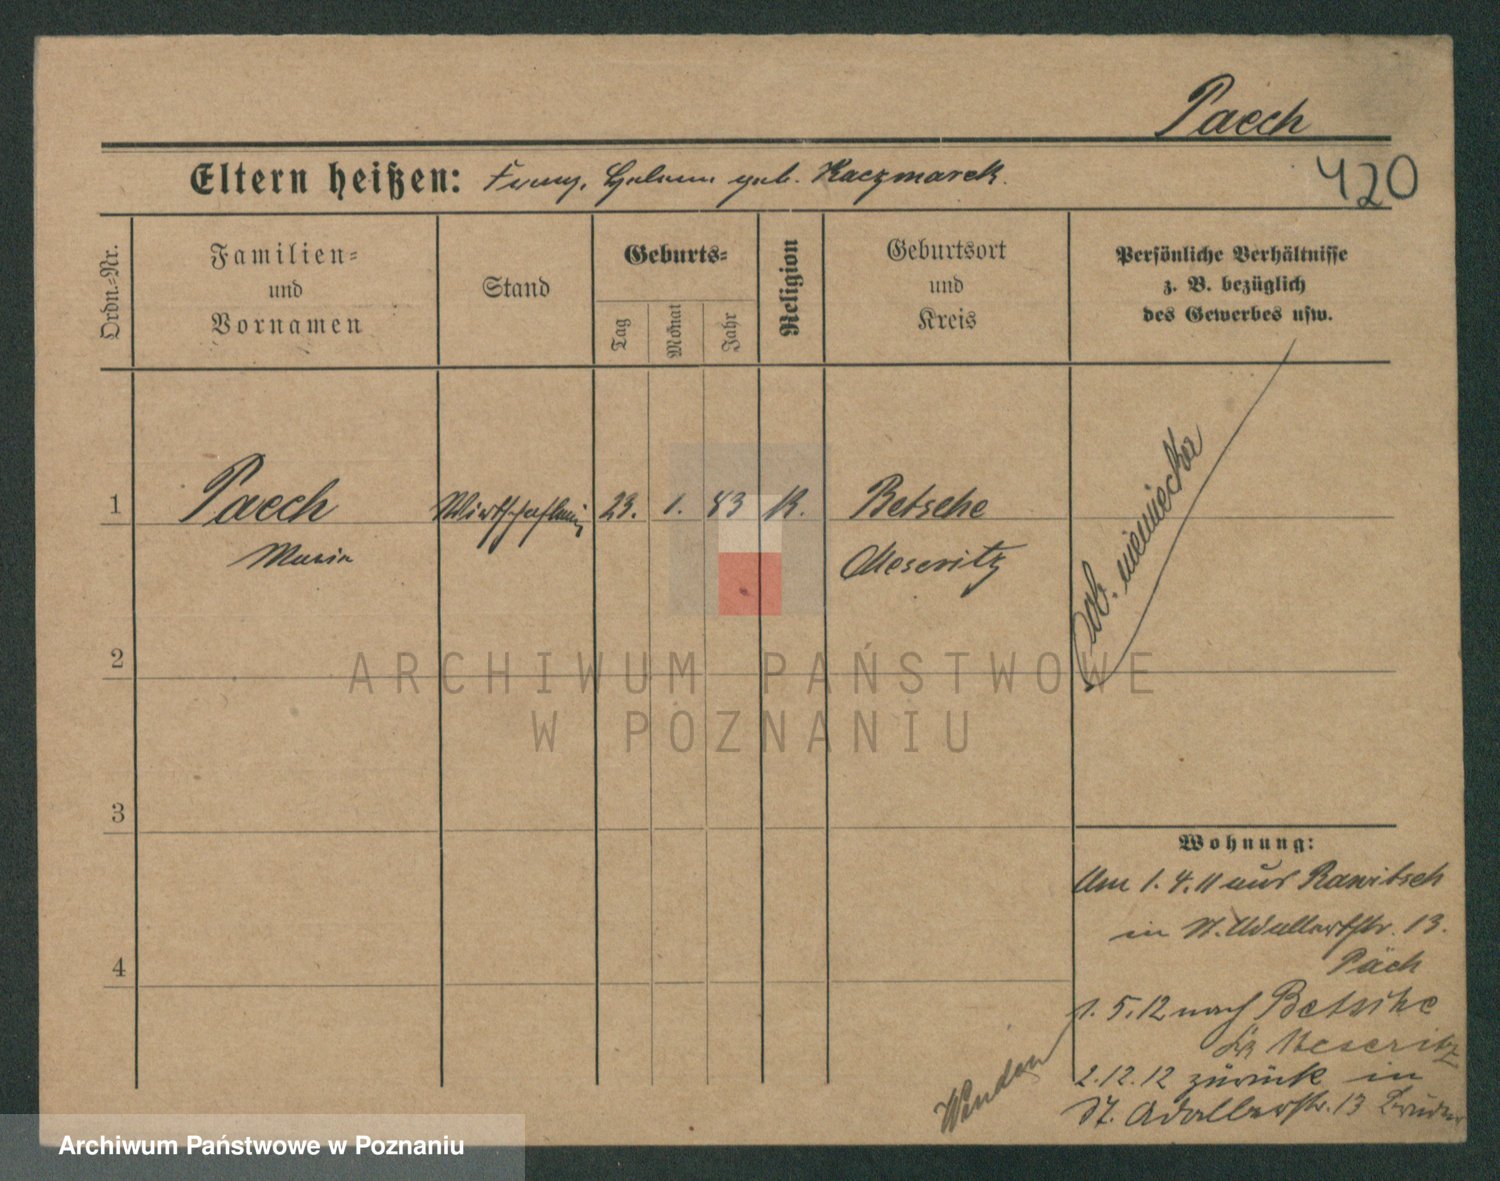 Paech
420
Eltern heißen: Franz, Helena geb. Kaczmarek.
Ordn.-Nr.
Familien-
und
Vornamen
Stand
Geburts-
Tag
Monat
Jahr
Religion
Geburtsort
und
Kreis
Persönliche Verhältnisse
z. B. bezüglich
des Gewerbes usw.
1
Paech
Maria
Wirtschafterin
23. 1. 83 K.
Betsche
Meseritz
ob. niemiecka
2
3
4
Wohnung:
Am 1.4.11 aus Rawitsch
in St. Adalbertstr. 13.
Päch
1.5.12 nach Betsche
Kr. Meseritz
2.12.12 zurück in
St. Adalbertstr. 13 Bruder
Wenden
ARCHIWUM PAŃSTWOWE
W POZNANIU
Archiwum Państwowe w Poznaniu